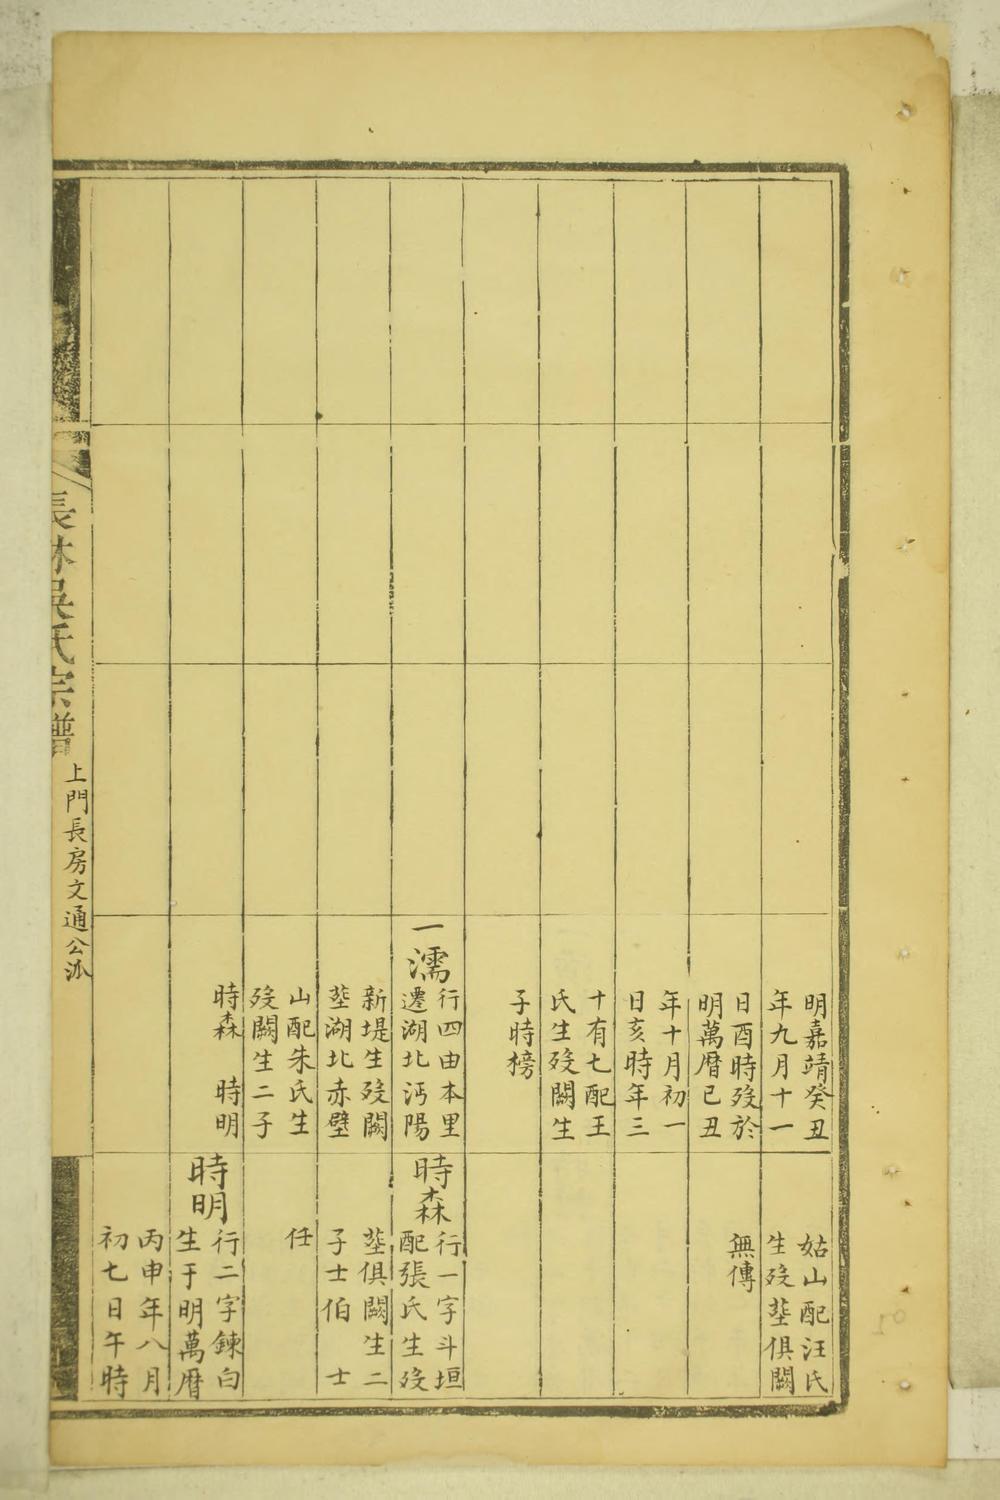 明嘉靖癸丑
年九月十一
日酉時歿於
明萬曆己丑
年十月初一
日亥時年三
十有七配王
氏生歿闕生
子時榜
一濡
行四由本里
遷湖北沔陽
新堤生歿闕
塟湖北赤壁
山配朱氏生
歿闕生二子
時森 時明
姑山配汪氏
生歿塟俱闕
無傳
時森
行一字斗垣
配張氏生歿
塟俱闕生二
子士伯 士
任
時明
行二字鍊白
生于明萬曆
丙申年八月
初七日午時
長林吳氏宗譜
上門長房文通公派